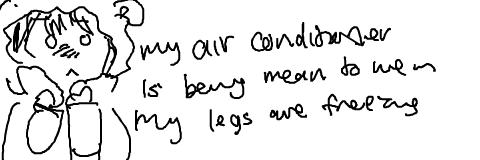 my air conditioner
is being mean to me
my legs are freezing